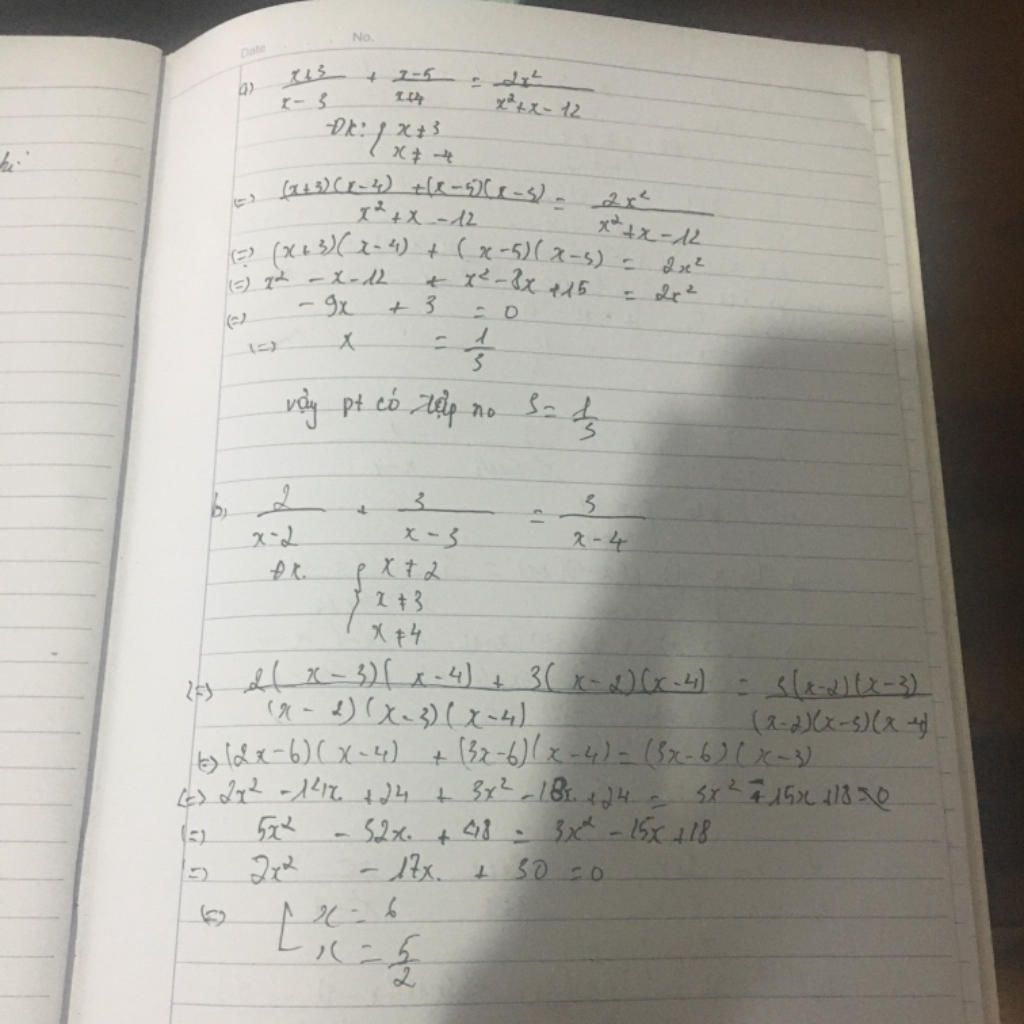 Date No.
a) (x+3)/(x-3) + (x-5)/(x+4) = 2x²/(x²+x-12)
ĐK: { x ≠ 3
x ≠ -4
(=) ((x+3)(x-4) + (x-5)(x-3))/(x²+x-12) = 2x²/(x²+x-12)
(=) (x+3)(x-4) + (x-5)(x-3) = 2x²
(=) x² - x - 12 + x² - 8x + 15 = 2x²
(=) -9x + 3 = 0
(=) x = 1/3
vậy pt có tập no S = 1/3
b, 2/(x-2) + 3/(x-3) = 3/(x-4)
ĐK. { x ≠ 2
x ≠ 3
x ≠ 4
(=) (2(x-3)(x-4) + 3(x-2)(x-4))/((x-2)(x-3)(x-4)) = 3(x-2)(x-3)/((x-2)(x-3)(x-4))
(=) (2x-6)(x-4) + (3x-6)(x-4) = (3x-6)(x-3)
(=) 2x² - 14x + 24 + 3x² - 18x + 24 = 3x² - 15x + 18
(=) 5x² - 32x + 48 = 3x² - 15x + 18
(=) 2x² - 17x + 30 = 0
(=) [ x = 6
x = 5/2